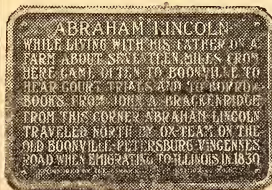 ABRAHAM LINCOLN
WHILE LIVING WITH HIS FATHER ON A
FARM ABOUT SEVENTEEN MILES FROM
HERE CAME OFTEN TO BOONVILLE TO
HEAR COURT TRIALS AND TO BORROW
BOOKS FROM JOHN A. BRACKENRIDGE
FROM THIS CORNER ABRAHAM LINCOLN
TRAVELED NORTH BY OX-TEAM ON THE
OLD BOONVILLE-PETERSBURG-VINCENNES
ROAD WHEN EMIGRATING TO ILLINOIS IN 1830